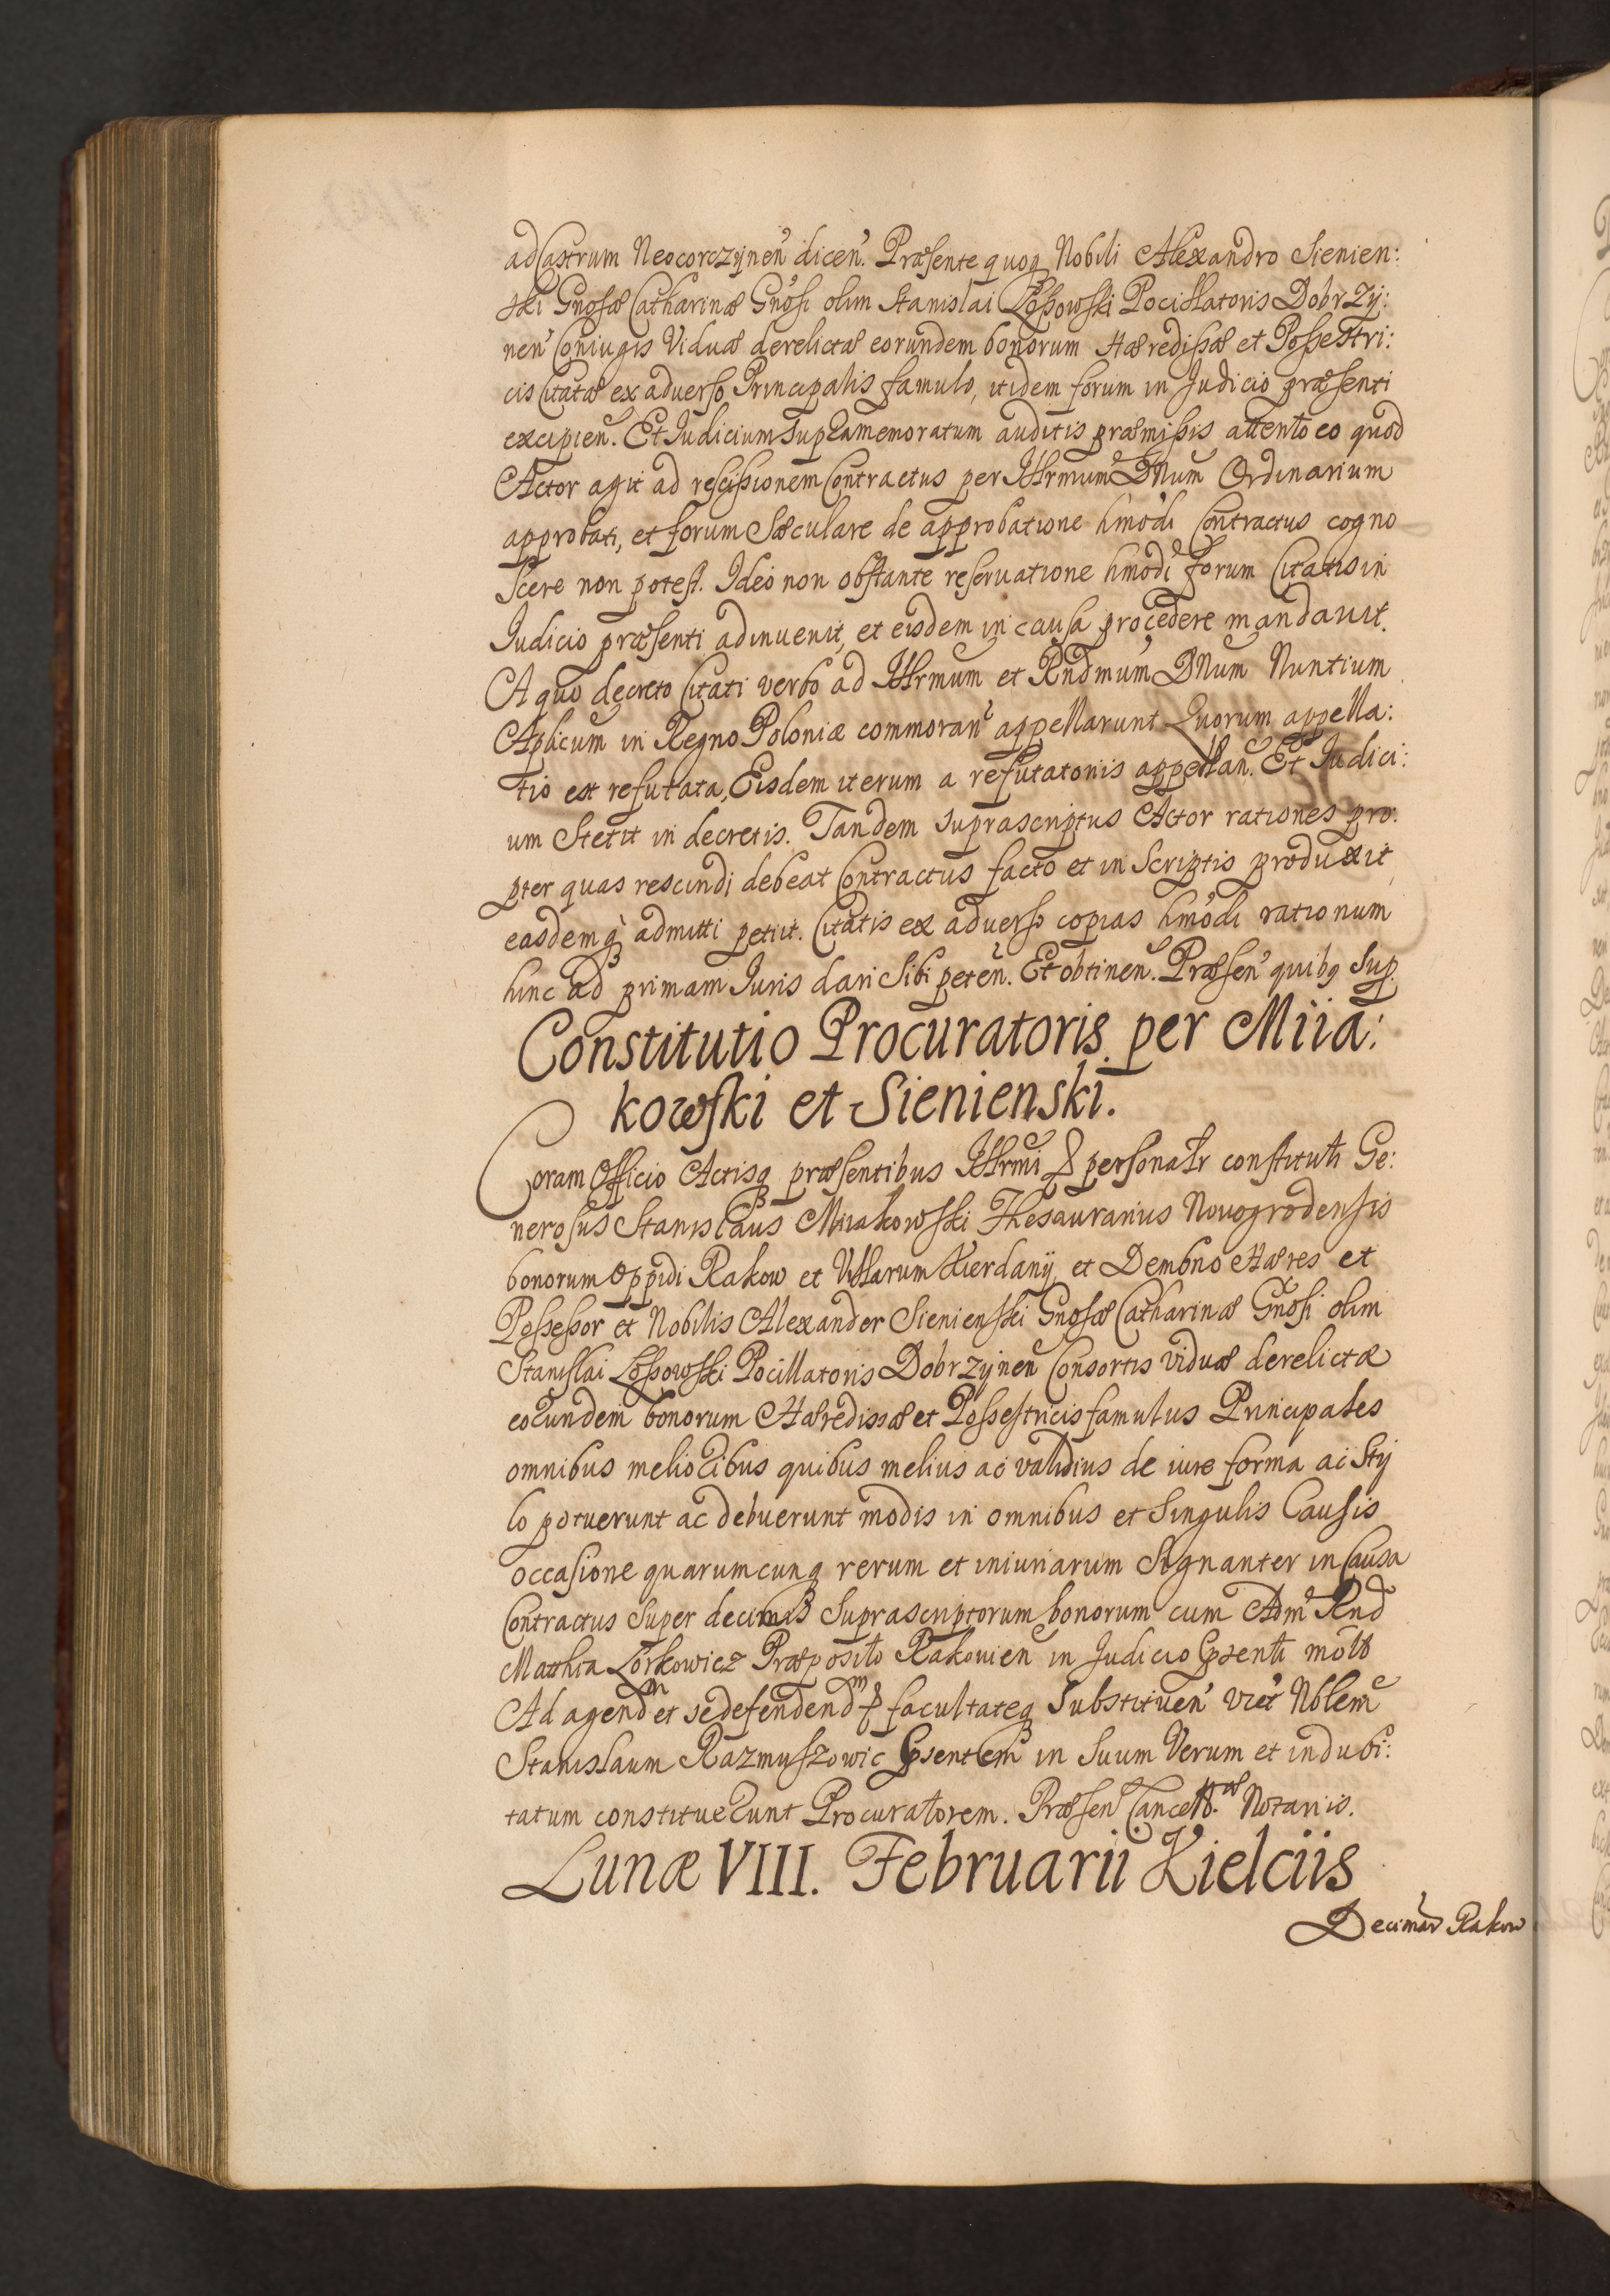 ad Castrum Neocorczÿnen̄ dicen̄. Præsente quoq Nobili Alexandro Sienien:
ski Gnosæ Catharinæ Gnosi olim Stanislai Loßowski Pocillatoris Dobrzÿ:
nen̄ Coniugis Viduæ derelictæ eorundem bonorum Hæredißæ et Poßestri:
cis Citatæ ex aduerso Principalis famulo, itidem forum in Judicio præsenti
excipien̄. Et Judicium supramemoratum auditis præmißis attento eo quod
Actor agit ad rescißionem Contractus per Illrmum Dnum Ordinarium
approbati, et forum Sæculare de approbatione hmodi Contractus cogno
scere non potest. Ideo non obstante reseruatione hmodi forum Citatis in
Iudicio præsenti adinuenit, et eisdem in causa procedere mandauit.
A quo decreto Citati verbo ad Illrmum et Rndmum Dnum Nuntium
Aplicum in Regno Poloniæ commoran̄ appellarunt Quorum appella:
tio est refutata, Eisdem iterum a refutatonis appellan̄. Et Judici:
um Stetit in decretis. Tandem suprascriptus Actor rationes pro:
pter quas rescindi debeat Contractus facto et in Scriptis produxit,
easdemq admitti petiit. Citatis ex aduerso copias hmodi rationum
hinc ad primam Iuris dari Sibi peten̄. Et obtinen̄. Præsen̄ quibq sup.
Constitutio Procuratoris per Miia:
kowski et Sienienski.
Coram Officio Actisq præsentibus Illrmi personalr constituti Ge:
nerosus Stanislaus Miiakowski Thesaurarius Nouogrodensis
bonorum oppidi Rakow et Villarum Kierdanÿ et Dembno Hæres et
Poßeßor et Nobilis Alexander Sienienski Gnosæ Catharinæ Gnosi olim
Stanislai Loßowski Pocillatoris Dobrzÿnen̄ Consortis viduæ derelictæ
eorundem bonorum Hæredissæ et Poßestricis famulus Principales
omnibus melioribus quibus melius ac validius de iure forma ac Stÿ
lo potuerunt ac debuerunt modis in omnibus et Singulis Causis
occasione quarumcunq rerum et iniuriarum Signanter in Causa
Contractus Super decimis Suprascriptorum bonorum cum Adm Rnd
Matthia Lorkowicz Præposito Rakouien̄ in Judicio psenti mota
Ad agendm et se defendendm facultateq Substituen̄ Nblem
Stanislaum Razmuszowic psentem in Suum Verum et indubi:
tatum constituerunt Procuratorem. Præsen̄ Cancellæ Notariis.
Lunæ VIII. Februarii Kielciis
Decimar Rakow